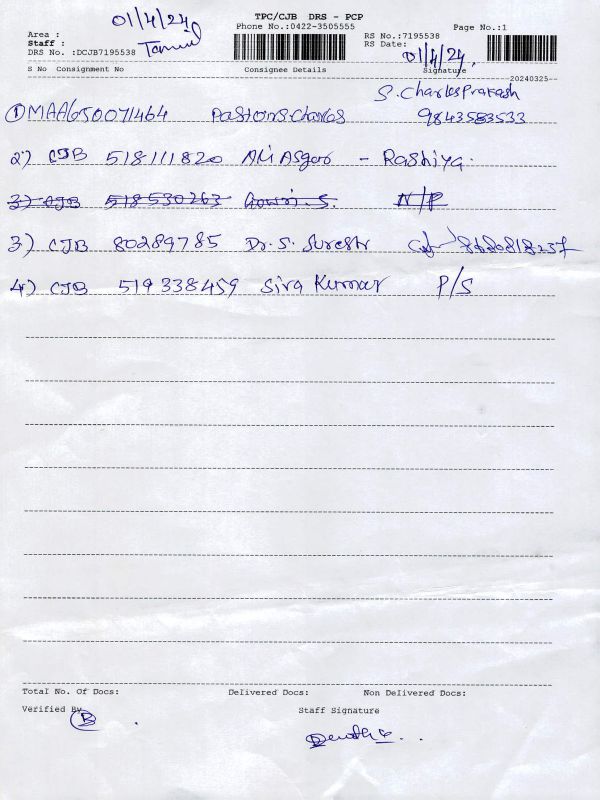 01/4/24
TPC/CJB DRS - PCP
Phone No.:0422-3505555
Page No.:1
Area :
Staff :
RS No.:7195538
RS Date:
01/4/24
DRS No. :DCJB7195538
S No Consignment No Consignee Details Signature
20240325--
S. Charles Prakash
① MAA650071464 Pastor S Charles 9843583533
2) CJB 518111820 Ali Asgar - Rashiya.
3) CJB 518530263 Gowri. S. N/P
3) CJB 80289785 Dr. S. Suresh
4) CJB 519338459 Siva Kumar P/S
Total No. Of Docs: Delivered Docs: Non Delivered Docs:
Verified By
B
Staff Signature